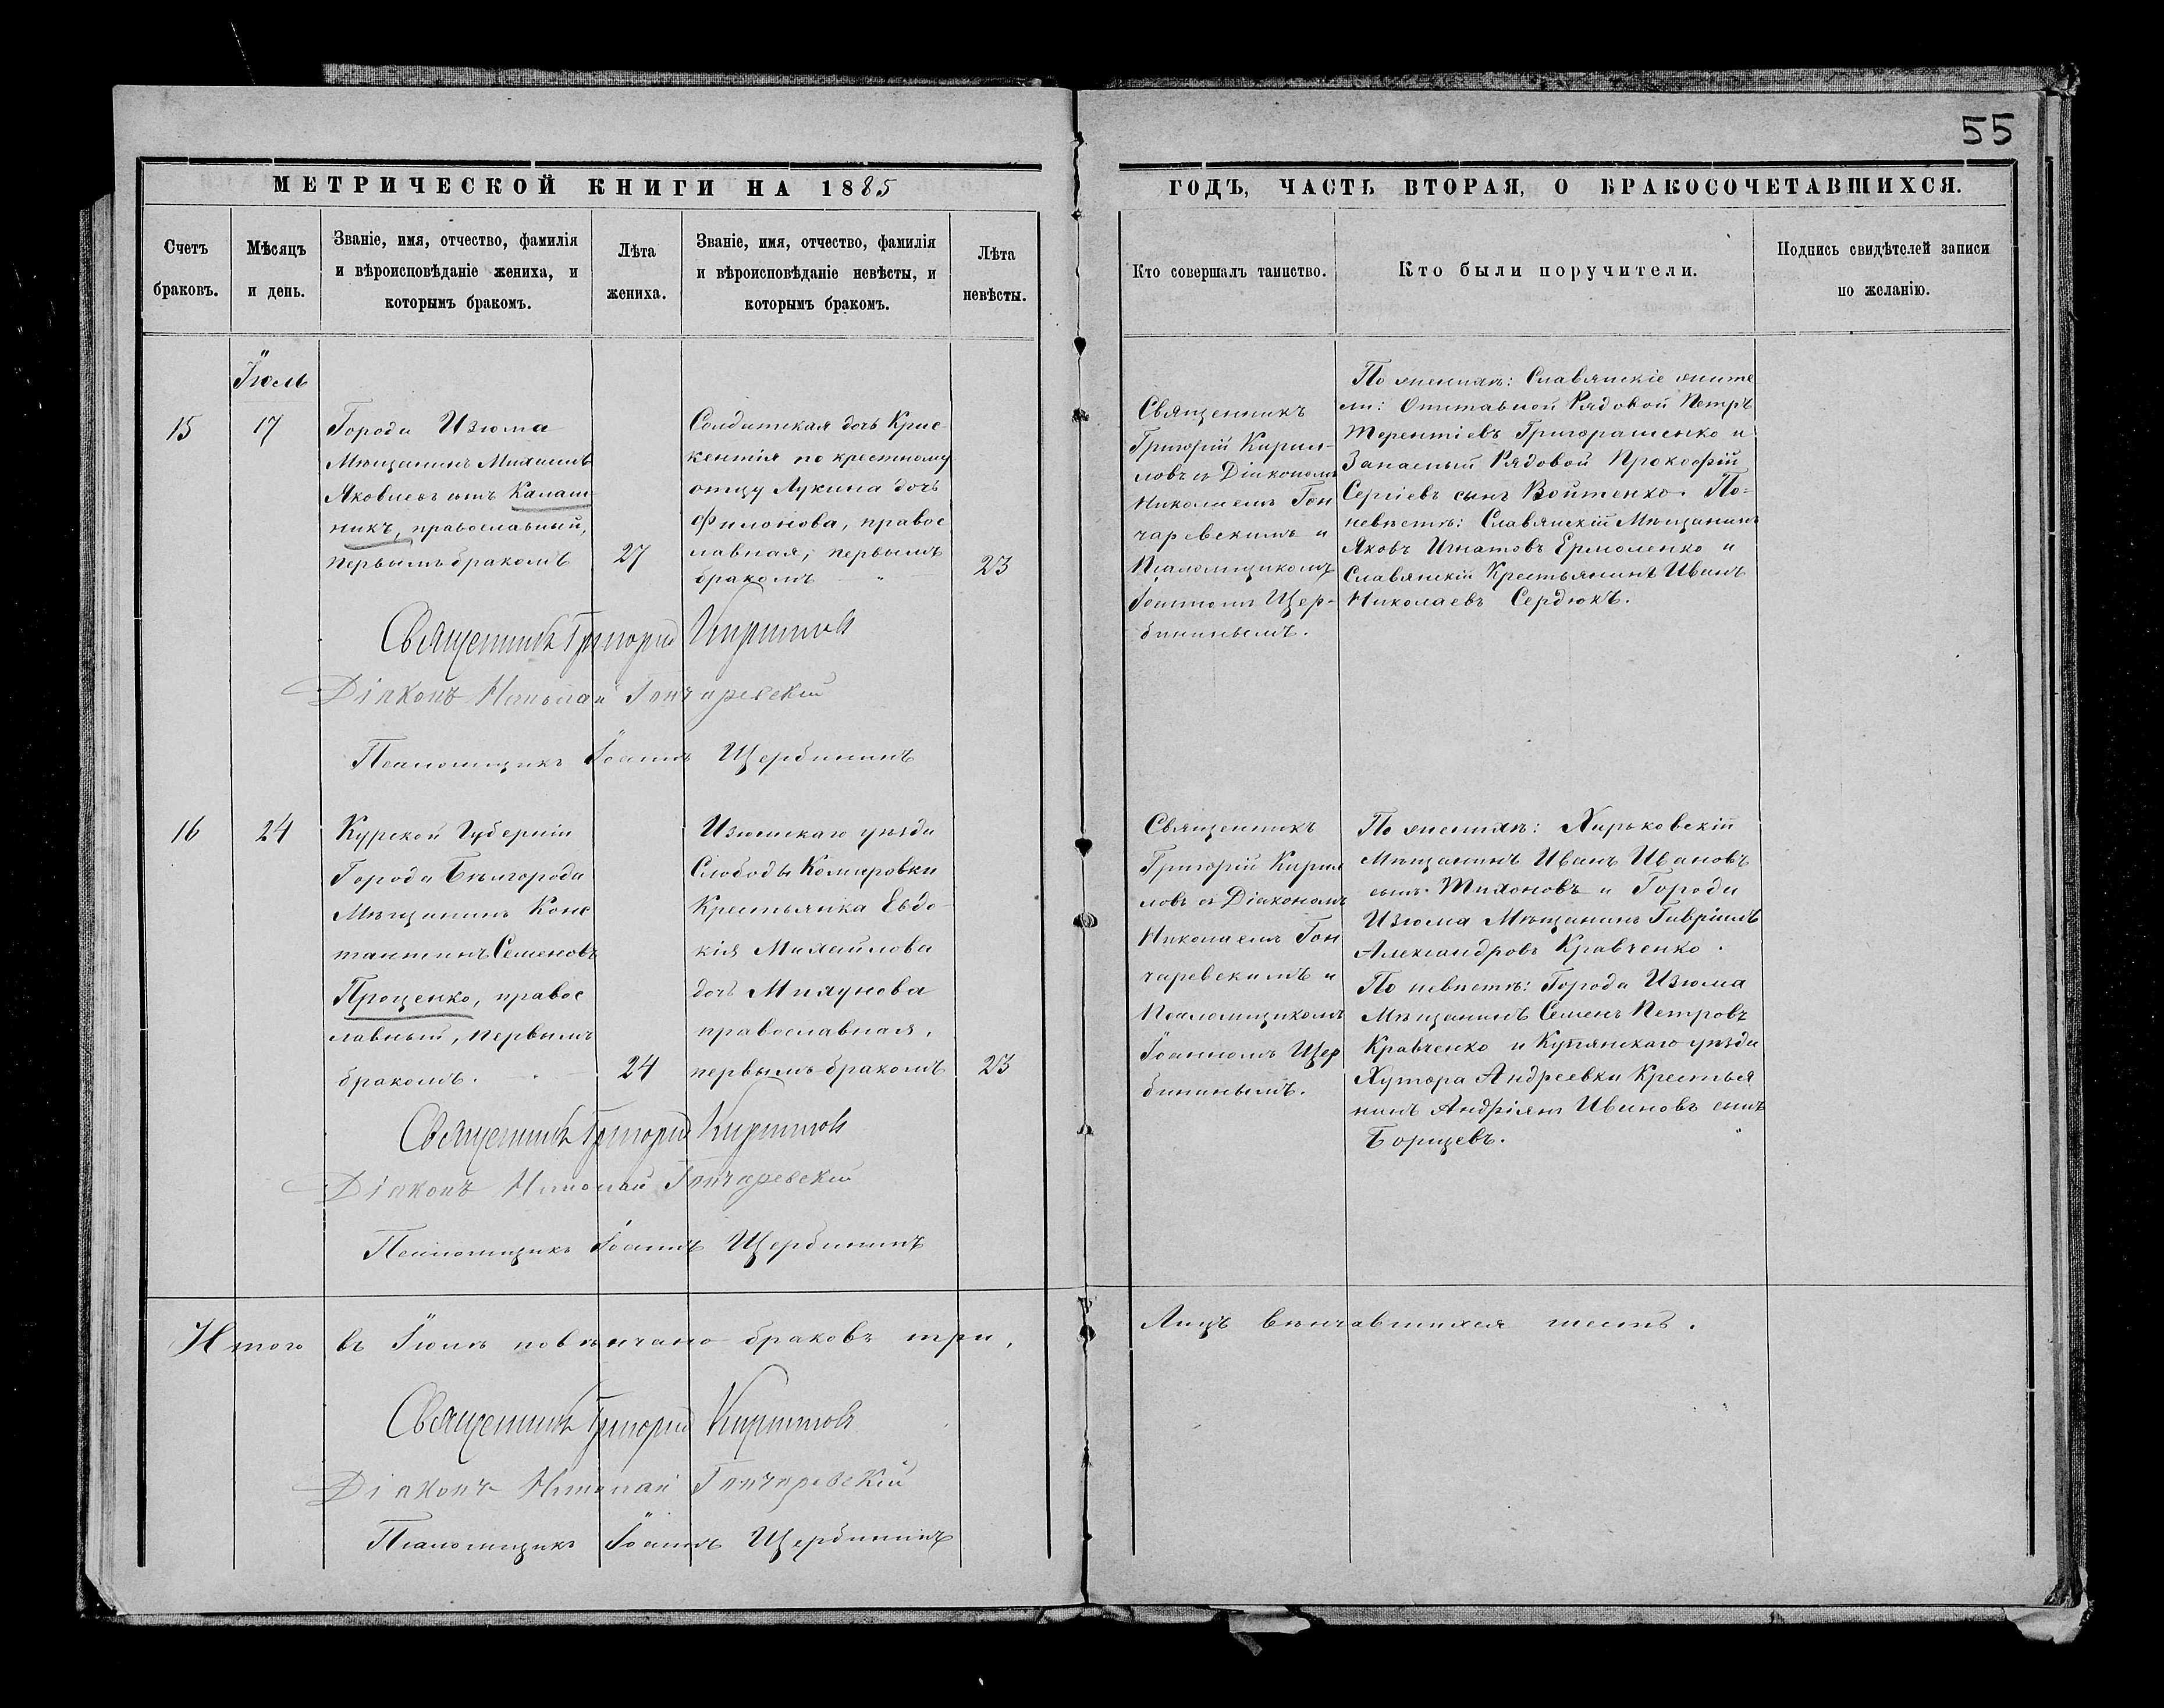 55
МЕТРИЧЕСКОЙ КНИГИ НА 1885
ГОДЪ, ЧАСТЬ ВТОРАЯ, О БРАКОСОЧЕТАВШИХСЯ.
Счетъ браковъ.
Мѣсяцъ и день.
Званіе, имя, отчество, фамилія и вѣроисповѣданіе жениха, и которымъ бракомъ.
Лѣта жениха.
Званіе, имя, отчество, фамилія и вѣроисповѣданіе невѣсты, и которымъ бракомъ.
Лѣта невѣсты.
Кто совершалъ таинство.
Кто были поручители.
Подпись свидѣтелей записи по желанію.
Іюль
15
17
Города Изюма
Мѣщанинъ Михаилъ
Яковлевъ сынъ Калаш
никъ, православный,
первымъ бракомъ
27
Солдатская дочь Крис
кентія по крестному
отцу Лукина дочь
Филонова, правос
лавная, первымъ
бракомъ
23
Священникъ
Григорій Кирил
ловъ съ Діакономъ
Николаемъ Гон
чаревскимъ и
Псаломщикомъ
Іоанномъ Щер-
бининымъ.
По женихѣ: Славянскіе жите
ли: Отставной Рядовой Петръ
Терентіевъ Григорашенко и
Запасный Рядовой Прокофій
Сергіевъ сынъ Войтенко. По=
невѣстѣ: Славянскій Мѣщанинъ
Яковъ Игнатовъ Ермоленко и
Славянскій Крестьянинъ Иванъ
Николаевъ Сердюкъ.
Священникъ Григорій Кирилловъ
Діаконъ Николай Гончаревскій
Псаломщикъ Іоаннъ Щербининъ
16
24
Курской Губерніи
Города Бѣлгорода
Мѣщанинъ Конс
тантинъ Семеновъ
Проценко, правос
лавный, первымъ
бракомъ.
24
Изюмскаго уѣзда
Слободы Комаровки
Крестьянка Евдо
кія Михайлова
дочь Милунова
православная,
первымъ бракомъ
23
Священникъ
Григорій Кирил
ловъ съ Діакономъ
Николаемъ Гон
чаревскимъ и
Псаломщикомъ
Іоанномъ Щер
бининымъ.
По женихѣ: Харьковскій
Мѣщанинъ Иванъ Ивановъ
сынъ Тихоновъ и Города
Изюма Мѣщанинъ Гавріилъ
Александровъ Кравченко.
По невѣстѣ: Города Изюма
Мѣщанинъ Семенъ Петровъ
Кравченко и Купянскаго уѣзда
Хутора Андреевки Крестья
нинъ Андріянъ Ивановъ сынъ
Борщевъ.
Священникъ Григорій Кирилловъ
Діаконъ Николай Гончаревскій
Псаломщикъ Іоаннъ Щербининъ
Итого въ Іюлѣ повѣнчано браковъ три,
Лицъ вѣнчавшихся шесть.
Священникъ Григорій Кирилловъ
Діаконъ Николай Гончаревскій
Псаломщикъ Іоаннъ Щербининъ